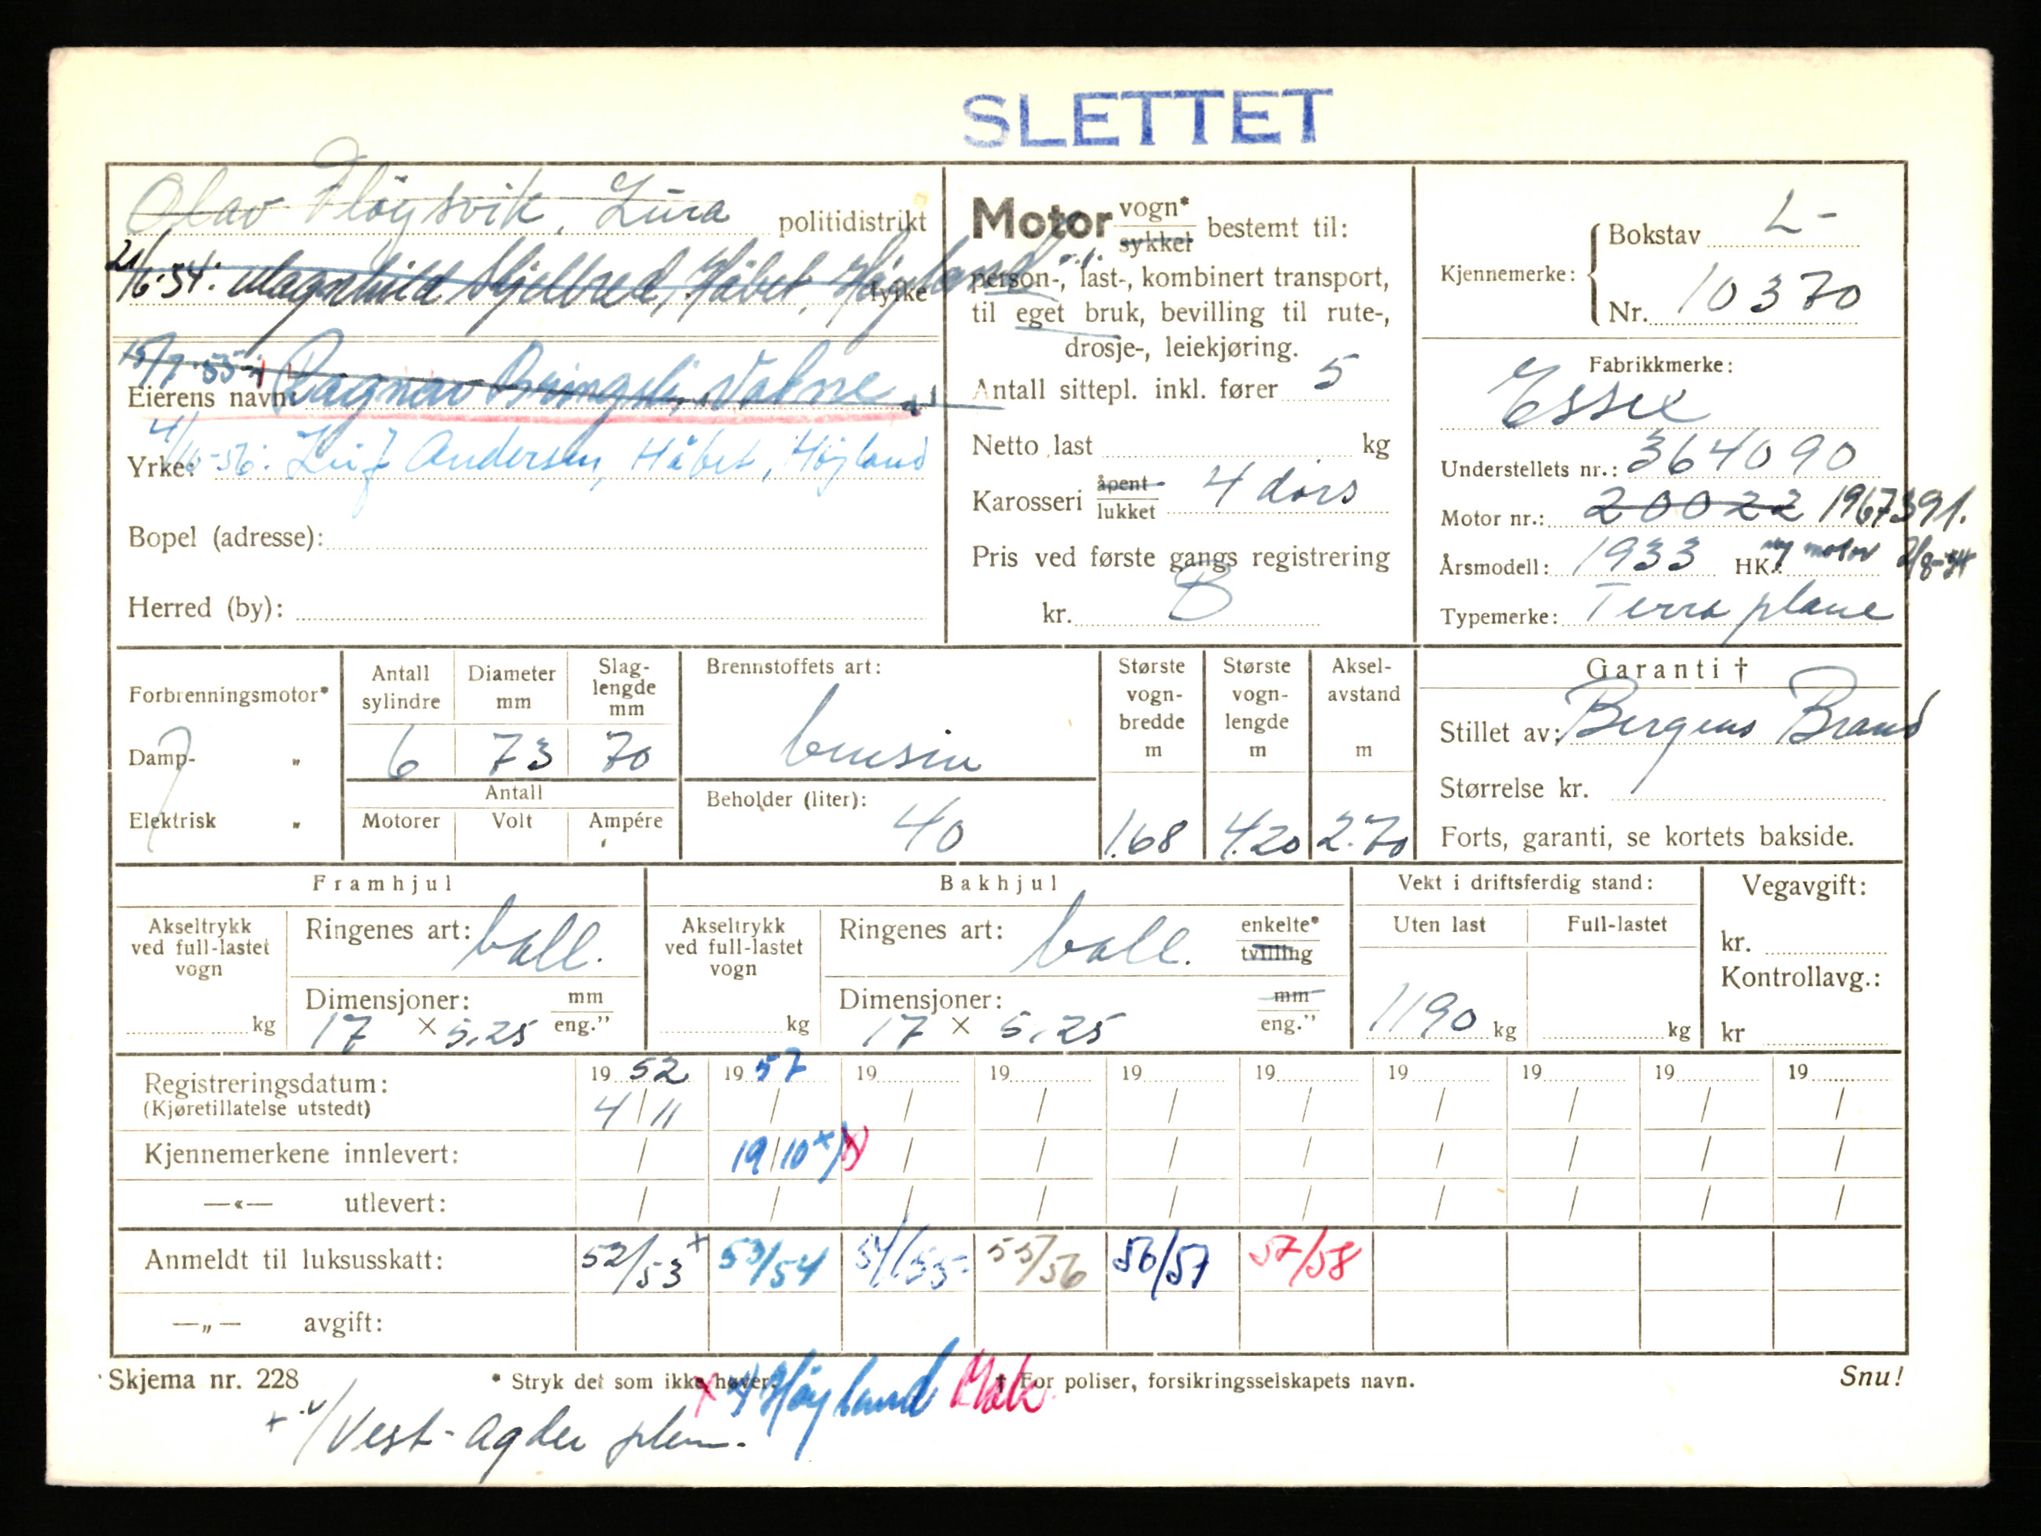 SLETTET
Olav Fløysvik, Lura politidistrikt
21/6-54: Magnhild Skjelbred, Håbet, Høyland fylke
15/7-55: Ragnar Bringeli, Vatne
Eierens navn:
4/10-56: Leif Andersen, Håbet, Høyland
Yrke:
Bopel (adresse):
Herred (by):
Motor vogn* sykkel bestemt til:
person-, last-, kombinert transport,
til eget bruk, bevilling til rute-,
drosje-, leiekjøring.
Antall sittepl. inkl. fører 5
Netto last kg
Karosseri åpent lukket 4 dørs
Pris ved første gangs registrering
kr. B
Kjennemerke:
Bokstav L-
Nr. 10370
Fabrikkmerke:
Essex
Understellets nr.: 364090
Motor nr.: 20022 1967391.
Årsmodell: 1933 HK.: ny motor 2/8-54
Typemerke: Terraplane
Forbrenningsmotor*
Damp- „
Elektrisk „
Antall sylindre 6
Diameter mm 73
Slaglengde mm 70
Antall
Motorer Volt Ampére
Brennstoffets art:
bensin
Beholder (liter): 40
Største vogn-bredde m 1.68
Største vogn-lengde m 4.20
Aksel-avstand m 2.70
Garanti †
Stillet av: Bergens Brand
Størrelse kr.
Forts, garanti, se kortets bakside.
Framhjul
Akseltrykk ved full-lastet vogn kg
Ringenes art: ball.
Dimensjoner: mm
17 × 5.25 eng.”
Bakhjul
Akseltrykk ved full-lastet vogn kg
Ringenes art: ball. enkelte* tvilling
Dimensjoner: mm
17 × 5.25 eng.”
Vekt i driftsferdig stand:
Uten last Full-lastet
1190 kg kg
Vegavgift:
kr.
Kontrollavg.:
kr
Registreringsdatum: 1952 1957 19 19 19 19 19 19 19 19
(Kjøretillatelse utstedt) 4/11 / / / / / / / / /
Kjennemerkene innlevert: / 19/10 x) / / / / / / / /
—«— utlevert: / / / / / / / / / /
Anmeldt til luksusskatt: 52/53 + 53/54 54/55 55/56 56/57 57/58
—„— avgift:
Skjema nr. 228 * Stryk det som ikke høver. † For poliser, forsikringsselskapets navn. Snu!
x) Høyland
+ Vest-Agder